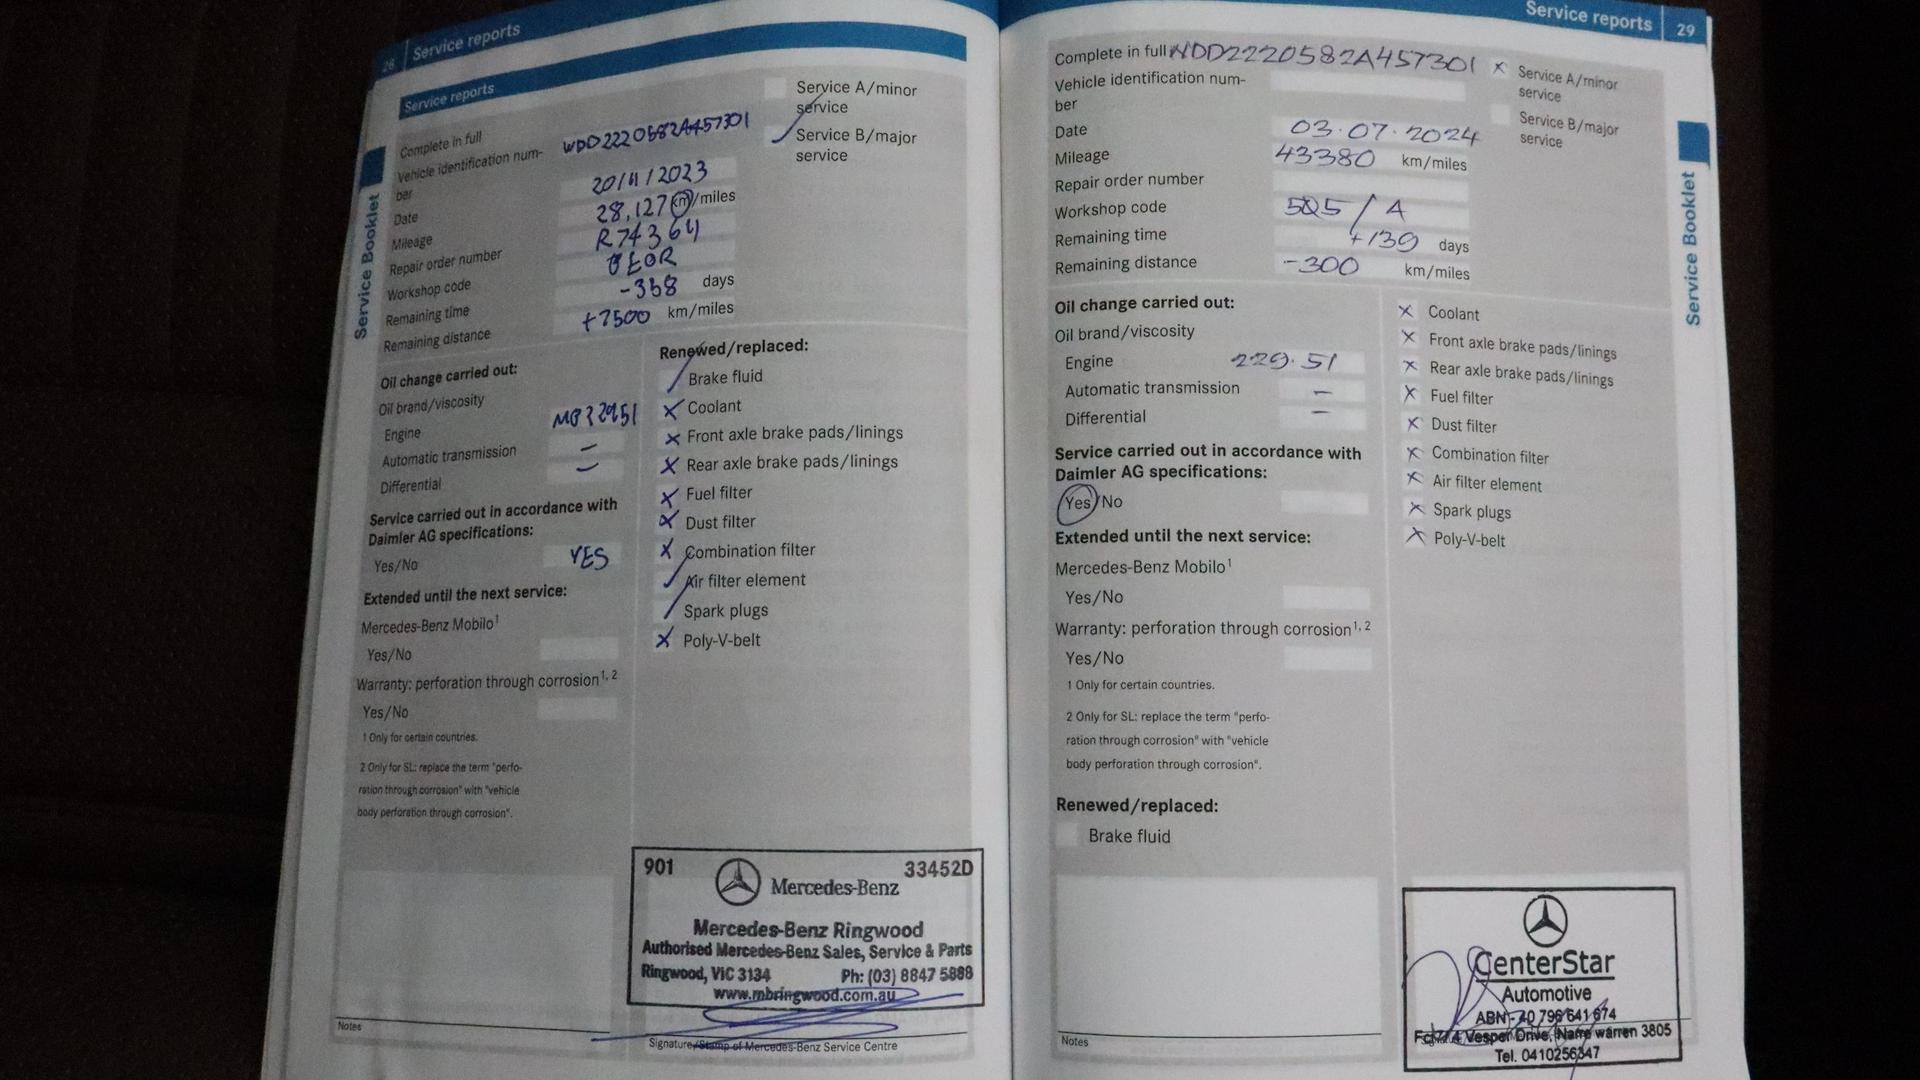 28 Service reports
Service reports
Complete in full
Vehicle identification num-
ber
WDD2220582A457301
Service A/minor
service
Service B/major
service
Date 20/11/2023
Mileage 28,127 km/miles
Repair order number R74364
Workshop code
Remaining time -358 days
Remaining distance +7500 km/miles
Oil change carried out:
Oil brand/viscosity
Engine MB22951
Automatic transmission –
Differential –
Service carried out in accordance with
Daimler AG specifications:
Yes/No YES
Extended until the next service:
Mercedes-Benz Mobilo1
Yes/No
Warranty: perforation through corrosion1, 2
Yes/No
1 Only for certain countries.
2 Only for SL: replace the term "perfo-
ration through corrosion" with "vehicle
body perforation through corrosion".
Renewed/replaced:
Brake fluid
X Coolant
X Front axle brake pads/linings
X Rear axle brake pads/linings
X Fuel filter
X Dust filter
X Combination filter
Air filter element
Spark plugs
X Poly-V-belt
901 33452D
Mercedes-Benz
Mercedes-Benz Ringwood
Authorised Mercedes-Benz Sales, Service & Parts
Ringwood, VIC 3134 Ph: (03) 8847 5888
www.mbringwood.com.au
Notes
Signature/Stamp of Mercedes-Benz Service Centre
Service Booklet
Service reports 29
Complete in full WDD2220582A457301
Vehicle identification num-
ber
X Service A/minor
service
Service B/major
service
Date 03.07.2024
Mileage 43380 km/miles
Repair order number
Workshop code 505 / A
Remaining time +139 days
Remaining distance -300 km/miles
Oil change carried out:
Oil brand/viscosity
Engine 229.51
Automatic transmission –
Differential –
Service carried out in accordance with
Daimler AG specifications:
Yes/No
Extended until the next service:
Mercedes-Benz Mobilo1
Yes/No
Warranty: perforation through corrosion1, 2
Yes/No
1 Only for certain countries.
2 Only for SL: replace the term "perfo-
ration through corrosion" with "vehicle
body perforation through corrosion".
Renewed/replaced:
Brake fluid
X Coolant
X Front axle brake pads/linings
X Rear axle brake pads/linings
X Fuel filter
X Dust filter
X Combination filter
X Air filter element
X Spark plugs
X Poly-V-belt
CenterStar
Automotive
ABN - 40 796 641 674
4 Vesper Drive, Narre warren 3805
Tel. 0410256347
Notes
Service Booklet